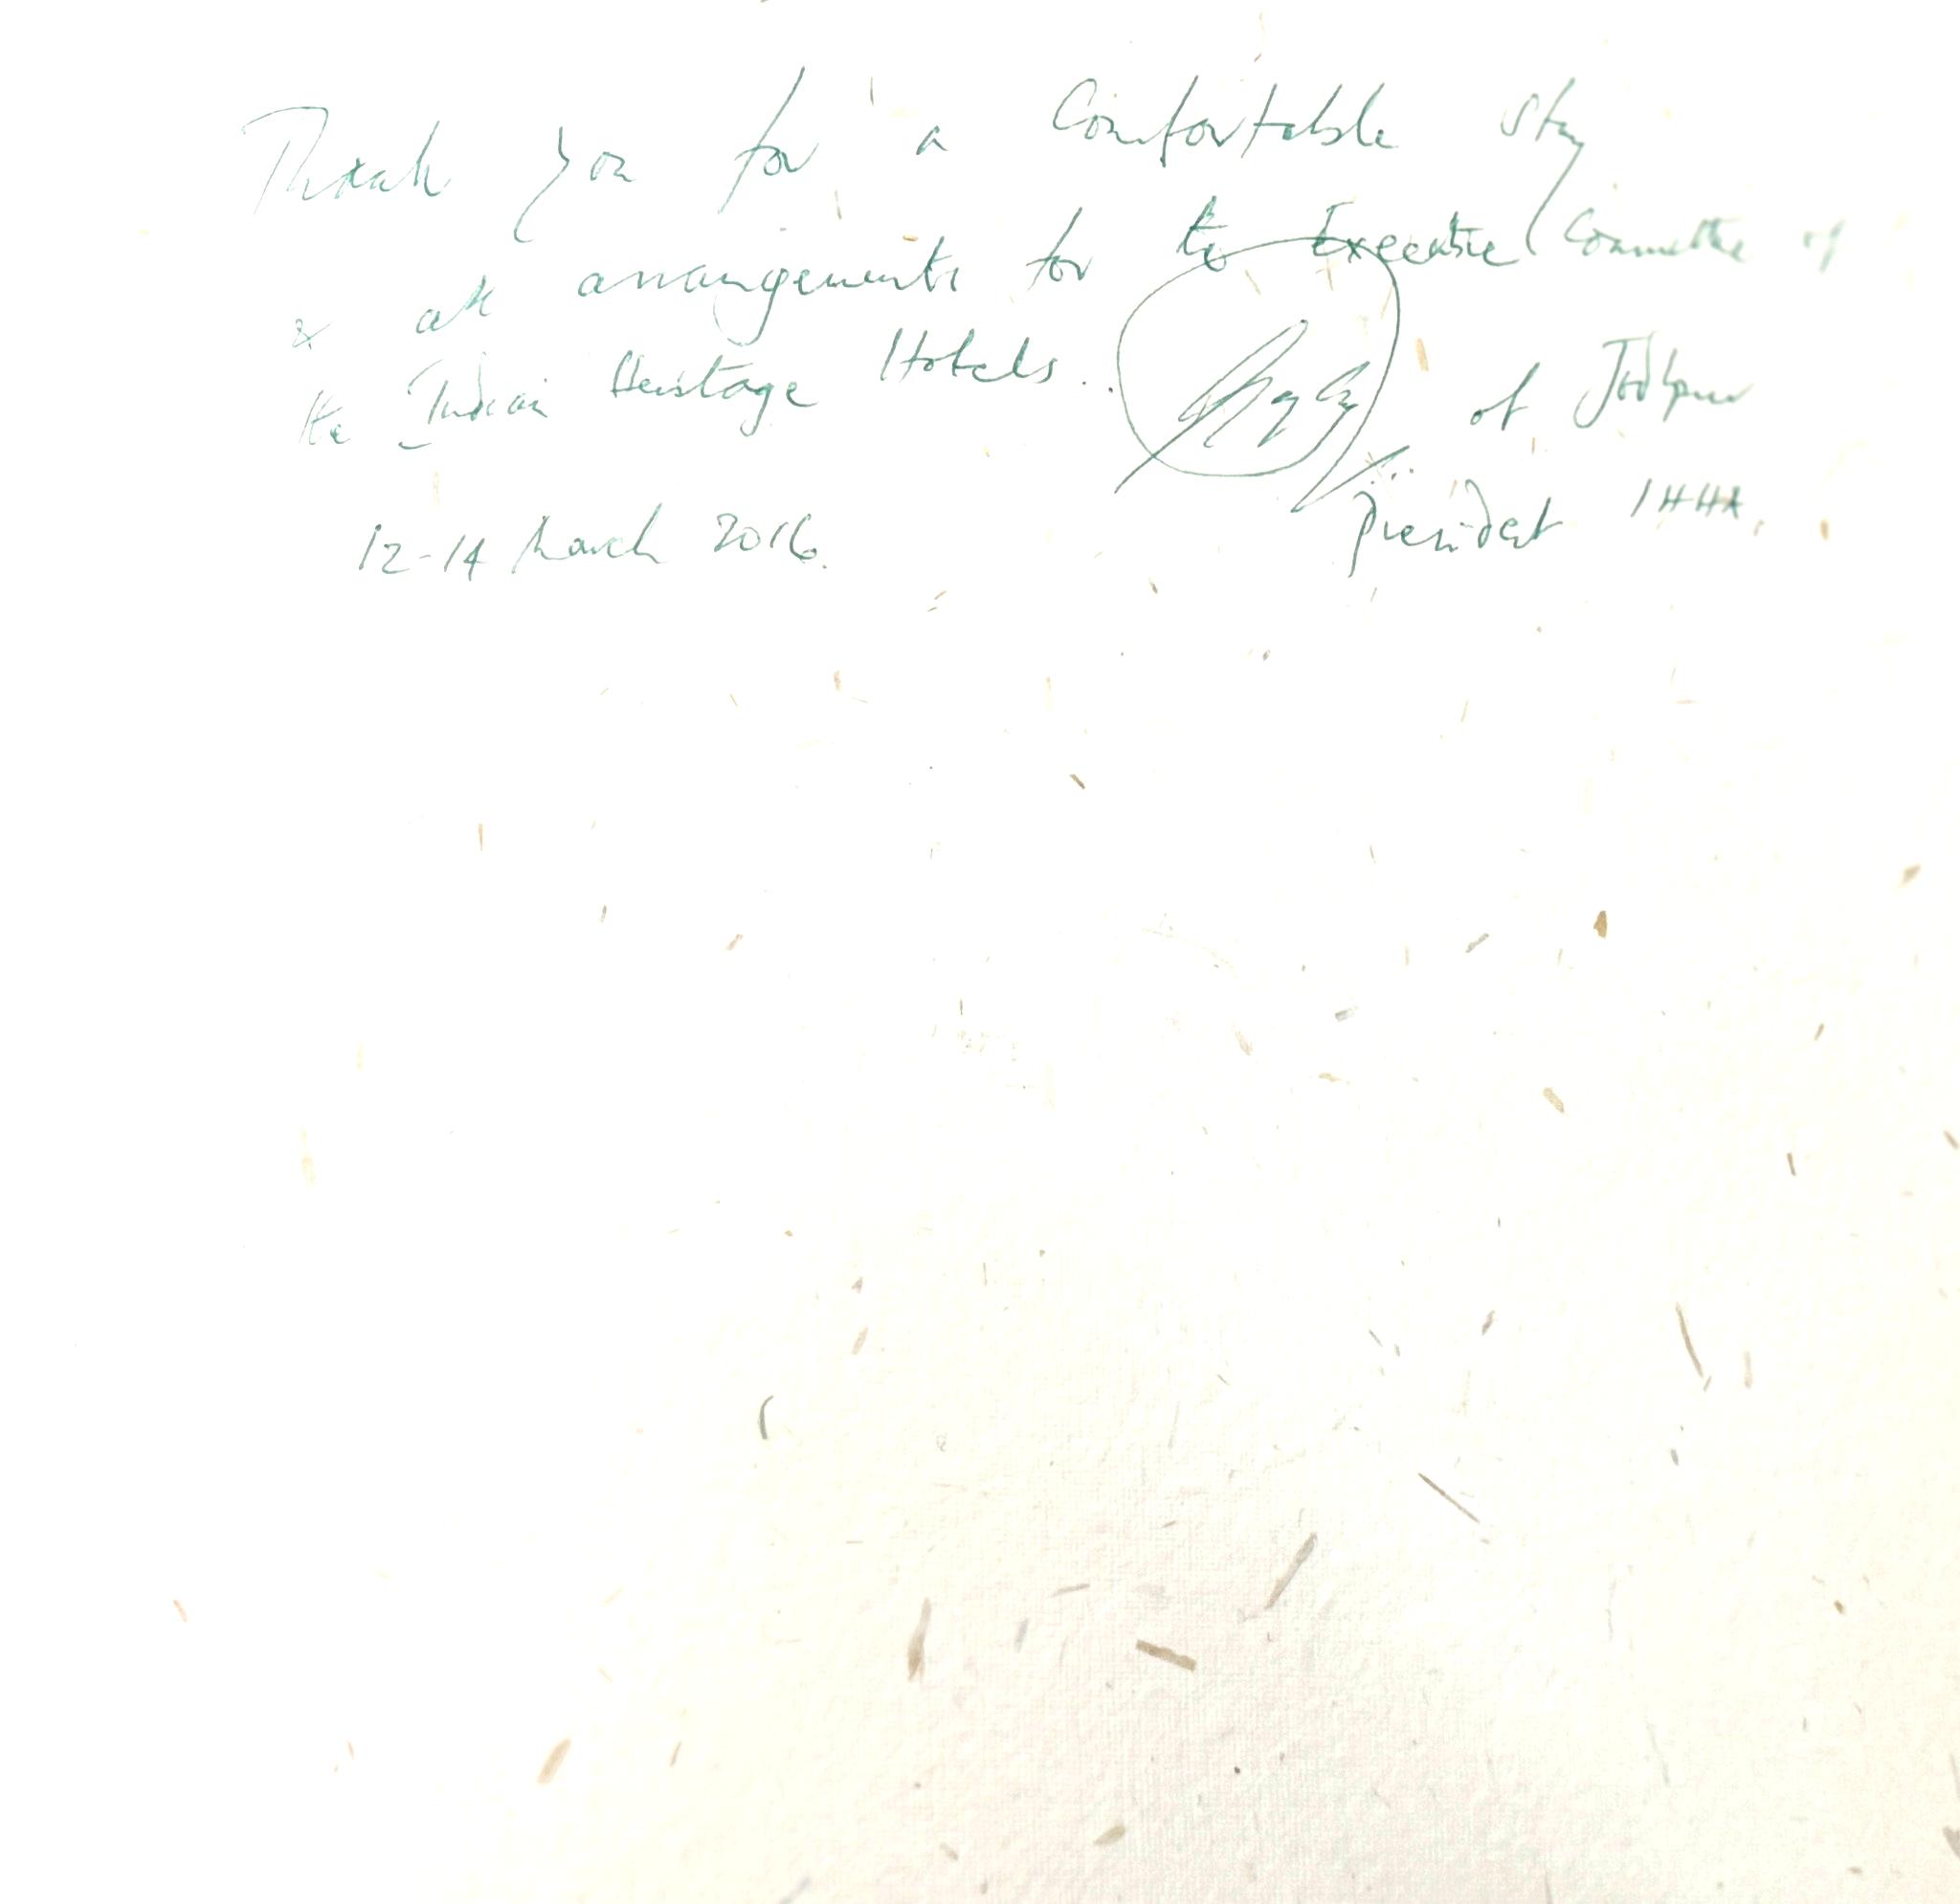 Thank you for a Comfortable stay
& all arrangements for the Executive Committee of
the Indian Heritage Hotels..
of Jodhpur
President IHHA.
12-14 March 2016.